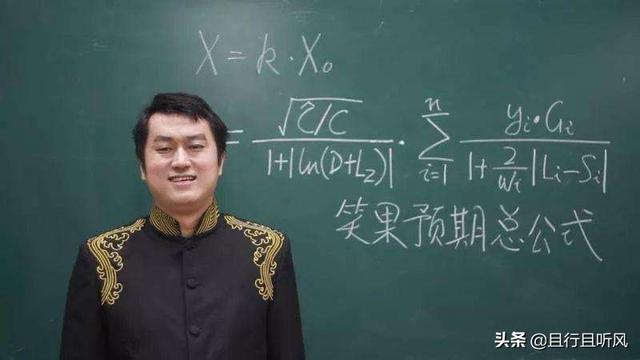 X = k · X₀
= √(Ĉ/C) / (1+|ln(D+L₂)|) · ∑ᵢ₌₁ⁿ (yᵢ·Gᵢ) / (1+(2/Wᵢ)|Lᵢ-Sᵢ|)
笑果预期总公式
头条 @且行且听风